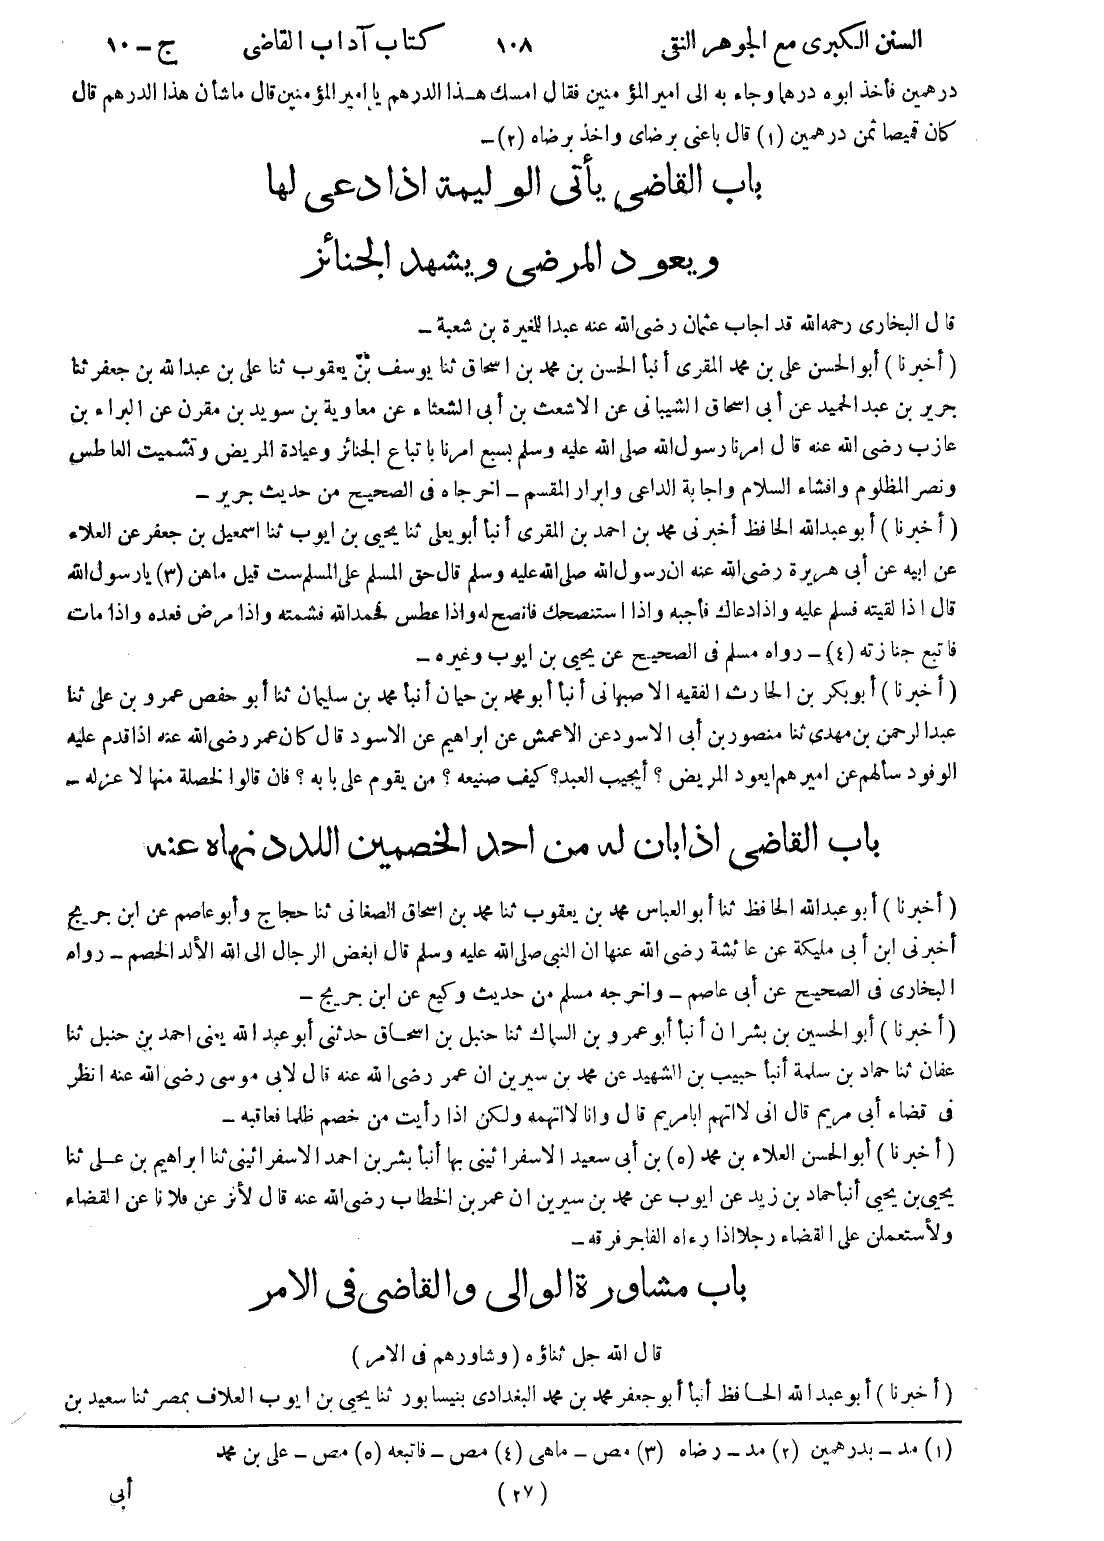 السنن الكبرى مع الجوهر النقى ١٠٨ كتاب آداب القاضى ج – ١٠
درهمين فأخذ ابوه درهما وجاء به الى امير المؤمنين فقال امسك هـذا الدرهم يا امير المؤمنين قال ماشأن هذا الدرهم قال
كان قميصا ثمن درهمين (١) قال باعنى برضاى واخذ برضاه (٢) –
باب القاضى يأتى الوليمة اذا دعى لها
ويعود المرضى ويشهد الجنائز
قال البخارى رحمه الله قد اجاب عثمان رضى الله عنه عبدا للمغيرة بن شعبة –
(أخبرنا) أبو الحسن على بن محمد المقرى أنبأ الحسن بن محمد بن اسحاق ثنا يوسف بن يعقوب ثنا على بن عبد الله بن جعفر ثنا
جرير بن عبد الحميد عن أبى اسحاق الشيبانى عن الاشعث بن أبى الشعثاء عن معاوية بن سويد بن مقرن عن البراء بن
عازب رضى الله عنه قال امرنا رسول الله صلى الله عليه وسلم بسبع امرنا باتباع الجنائز وعيادة المريض وتشميت العاطس
ونصر المظلوم وافشاء السلام واجابة الداعى وابرار المقسم – اخرجاه فى الصحيح من حديث جرير –
(أخبرنا) أبو عبد الله الحافظ أخبرنى محمد بن احمد بن المقرى أنبأ أبو يعلى ثنا يحيى بن ايوب ثنا اسمعيل بن جعفر عن العلاء
عن ابيه عن أبى هريرة رضى الله عنه ان رسول الله صلى الله عليه وسلم قال حق المسلم على المسلم ست قيل ماهن (٣) يا رسول الله
قال اذا لقيته فسلم عليه واذا دعاك فأجبه واذا استنصحك فانصح له واذا عطس فحمد الله فشمته واذا مرض فعده واذا مات
فاتبع جنازته (٤) – رواه مسلم فى الصحيح عن يحيى بن ايوب وغيره –
(أخبرنا) أبو بكر بن الحارث الفقيه الاصبهانى أنبأ أبو محمد بن حيان أنبأ محمد بن سليمان ثنا أبو حفص عمرو بن على ثنا
عبد الرحمن بن مهدى ثنا منصور بن أبى الاسود عن الاعمش عن ابراهيم عن الاسود قال كان عمر رضى الله عنه اذا قدم عليه
الوفود سألهم عن اميرهم ايعود المريض ؟ أيجيب العبد ؟ كيف صنيعه ؟ من يقوم على بابه ؟ فان قالوا لخصلة منها لا عزله –
باب القاضى اذا بان له من احد الخصمين اللدد نهاه عنه
(أخبرنا) أبو عبد الله الحافظ ثنا أبو العباس محمد بن يعقوب ثنا محمد بن اسحاق الصغانى ثنا حجاج وأبو عاصم عن ابن جريج
أخبرنى ابن أبى مليكة عن عائشة رضى الله عنها ان النبى صلى الله عليه وسلم قال ابغض الرجال الى الله الألد الخصم – رواه
البخارى فى الصحيح عن أبى عاصم – واخرجه مسلم من حديث وكيع عن ابن جريج –
(أخبرنا) أبو الحسين بن بشران أنبأ أبو عمرو بن السماك ثنا حنبل بن اسحاق حدثنى أبو عبد الله يعنى احمد بن حنبل ثنا
عفان ثنا حماد بن سلمة أنبأ حبيب بن الشهيد عن محمد بن سيرين ان عمر رضى الله عنه قال لابى موسى رضى الله عنه انظر
فى قضاء أبى مريم قال انى لا اتهم ابا مريم قال وانا لا اتهمه ولكن اذا رأيت من خصم ظلما فعاقبه –
(أخبرنا) أبو الحسن العلاء بن محمد (٥) بن أبى سعيد الاسفرائينى بها أنبأ بشر بن احمد الاسفرائينى ثنا ابراهيم بن عـلى ثنا
يحيى بن يحيى أنبأ حماد بن زيد عن ايوب عن محمد بن سيرين ان عمر بن الخطاب رضى الله عنه قال لأنزعن فلانا عن القضاء
ولأستعملن على القضاء رجلا اذا رءاه الفاجر فرقه –
باب مشاورة الوالى والقاضى فى الامر
قال الله جل ثناؤه (وشاورهم فى الامر)
(أخبرنا) أبو عبد الله الحافظ أنبأ أبو جعفر محمد بن محمد البغدادى بنيسابور ثنا يحيى بن ايوب العلاف بمصر ثنا سعيد بن
(١) مد – بدرهمين (٢) مد – رضاه (٣) مص – ماهى (٤) مص – فاتبعه (٥) مص – على بن محمد
(٢٧) أبي